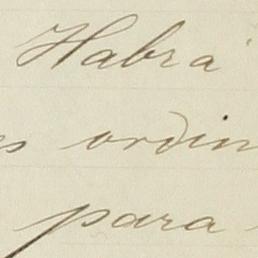 Habrá
es ordin
para